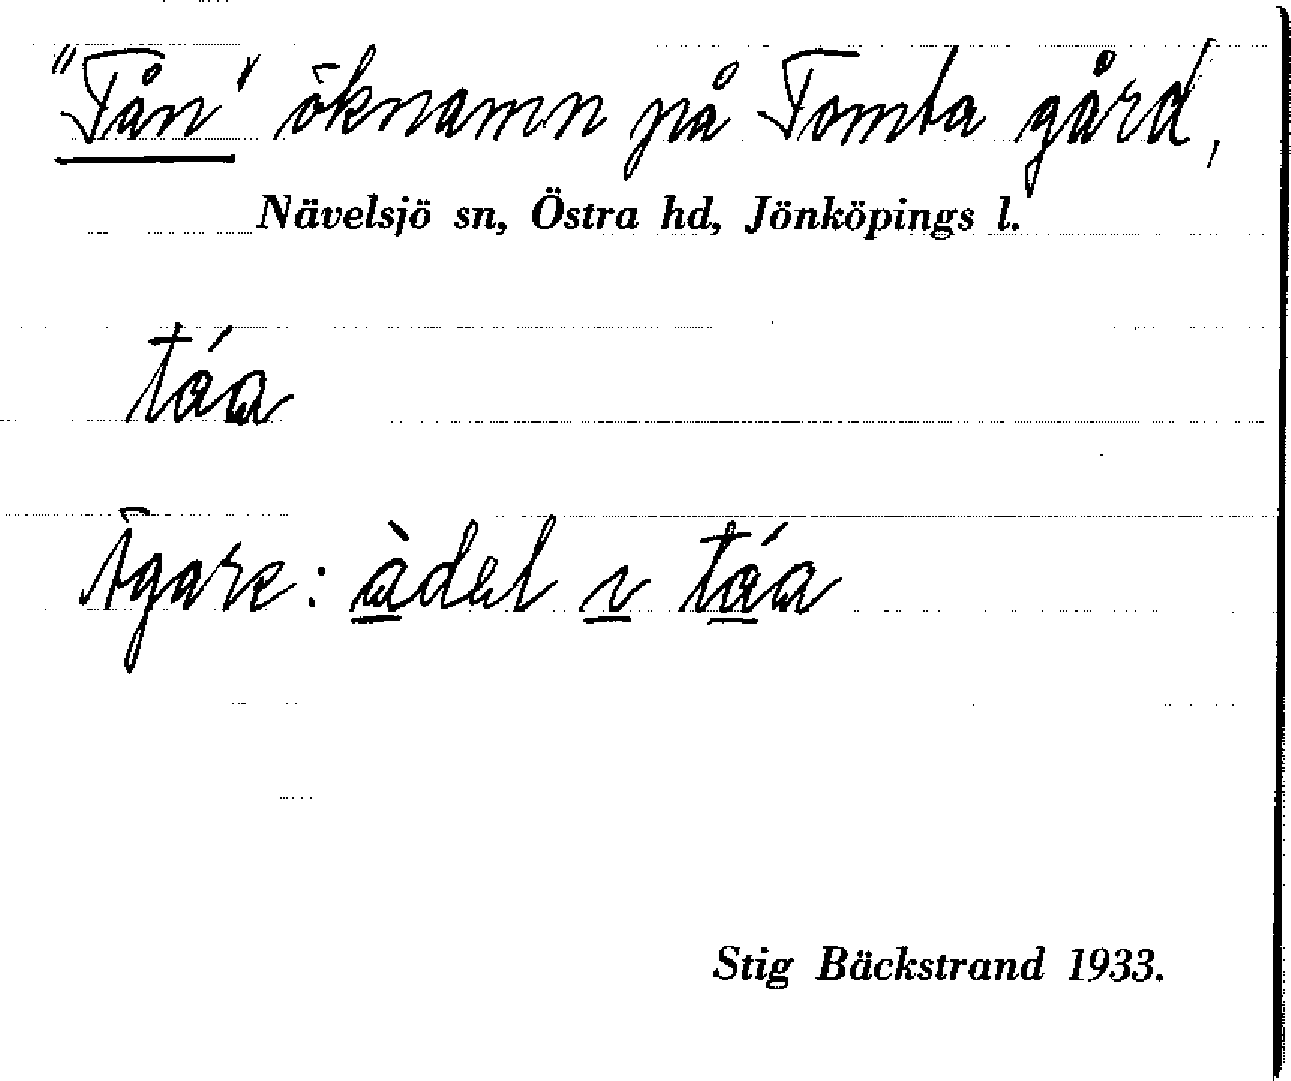 "Tån" öknamn på Tomta gård,
Nävelsjö sn, Östra hd, Jönköpings l.
táa
Ägare: àdel i táa
Stig Bäckstrand 1933.